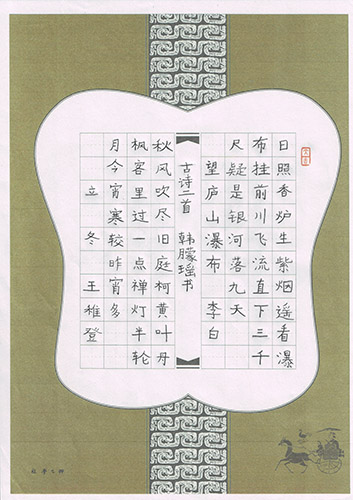 日照香炉生紫烟遥看瀑
布挂前川飞流直下三千
尺疑是银河落九天
望庐山瀑布 李白
古诗二首 韩朦瑶书
秋风吹尽旧庭柯黄叶丹
枫客里过一点禅灯半轮
月今宵寒较昨宵多
立冬 王稚登